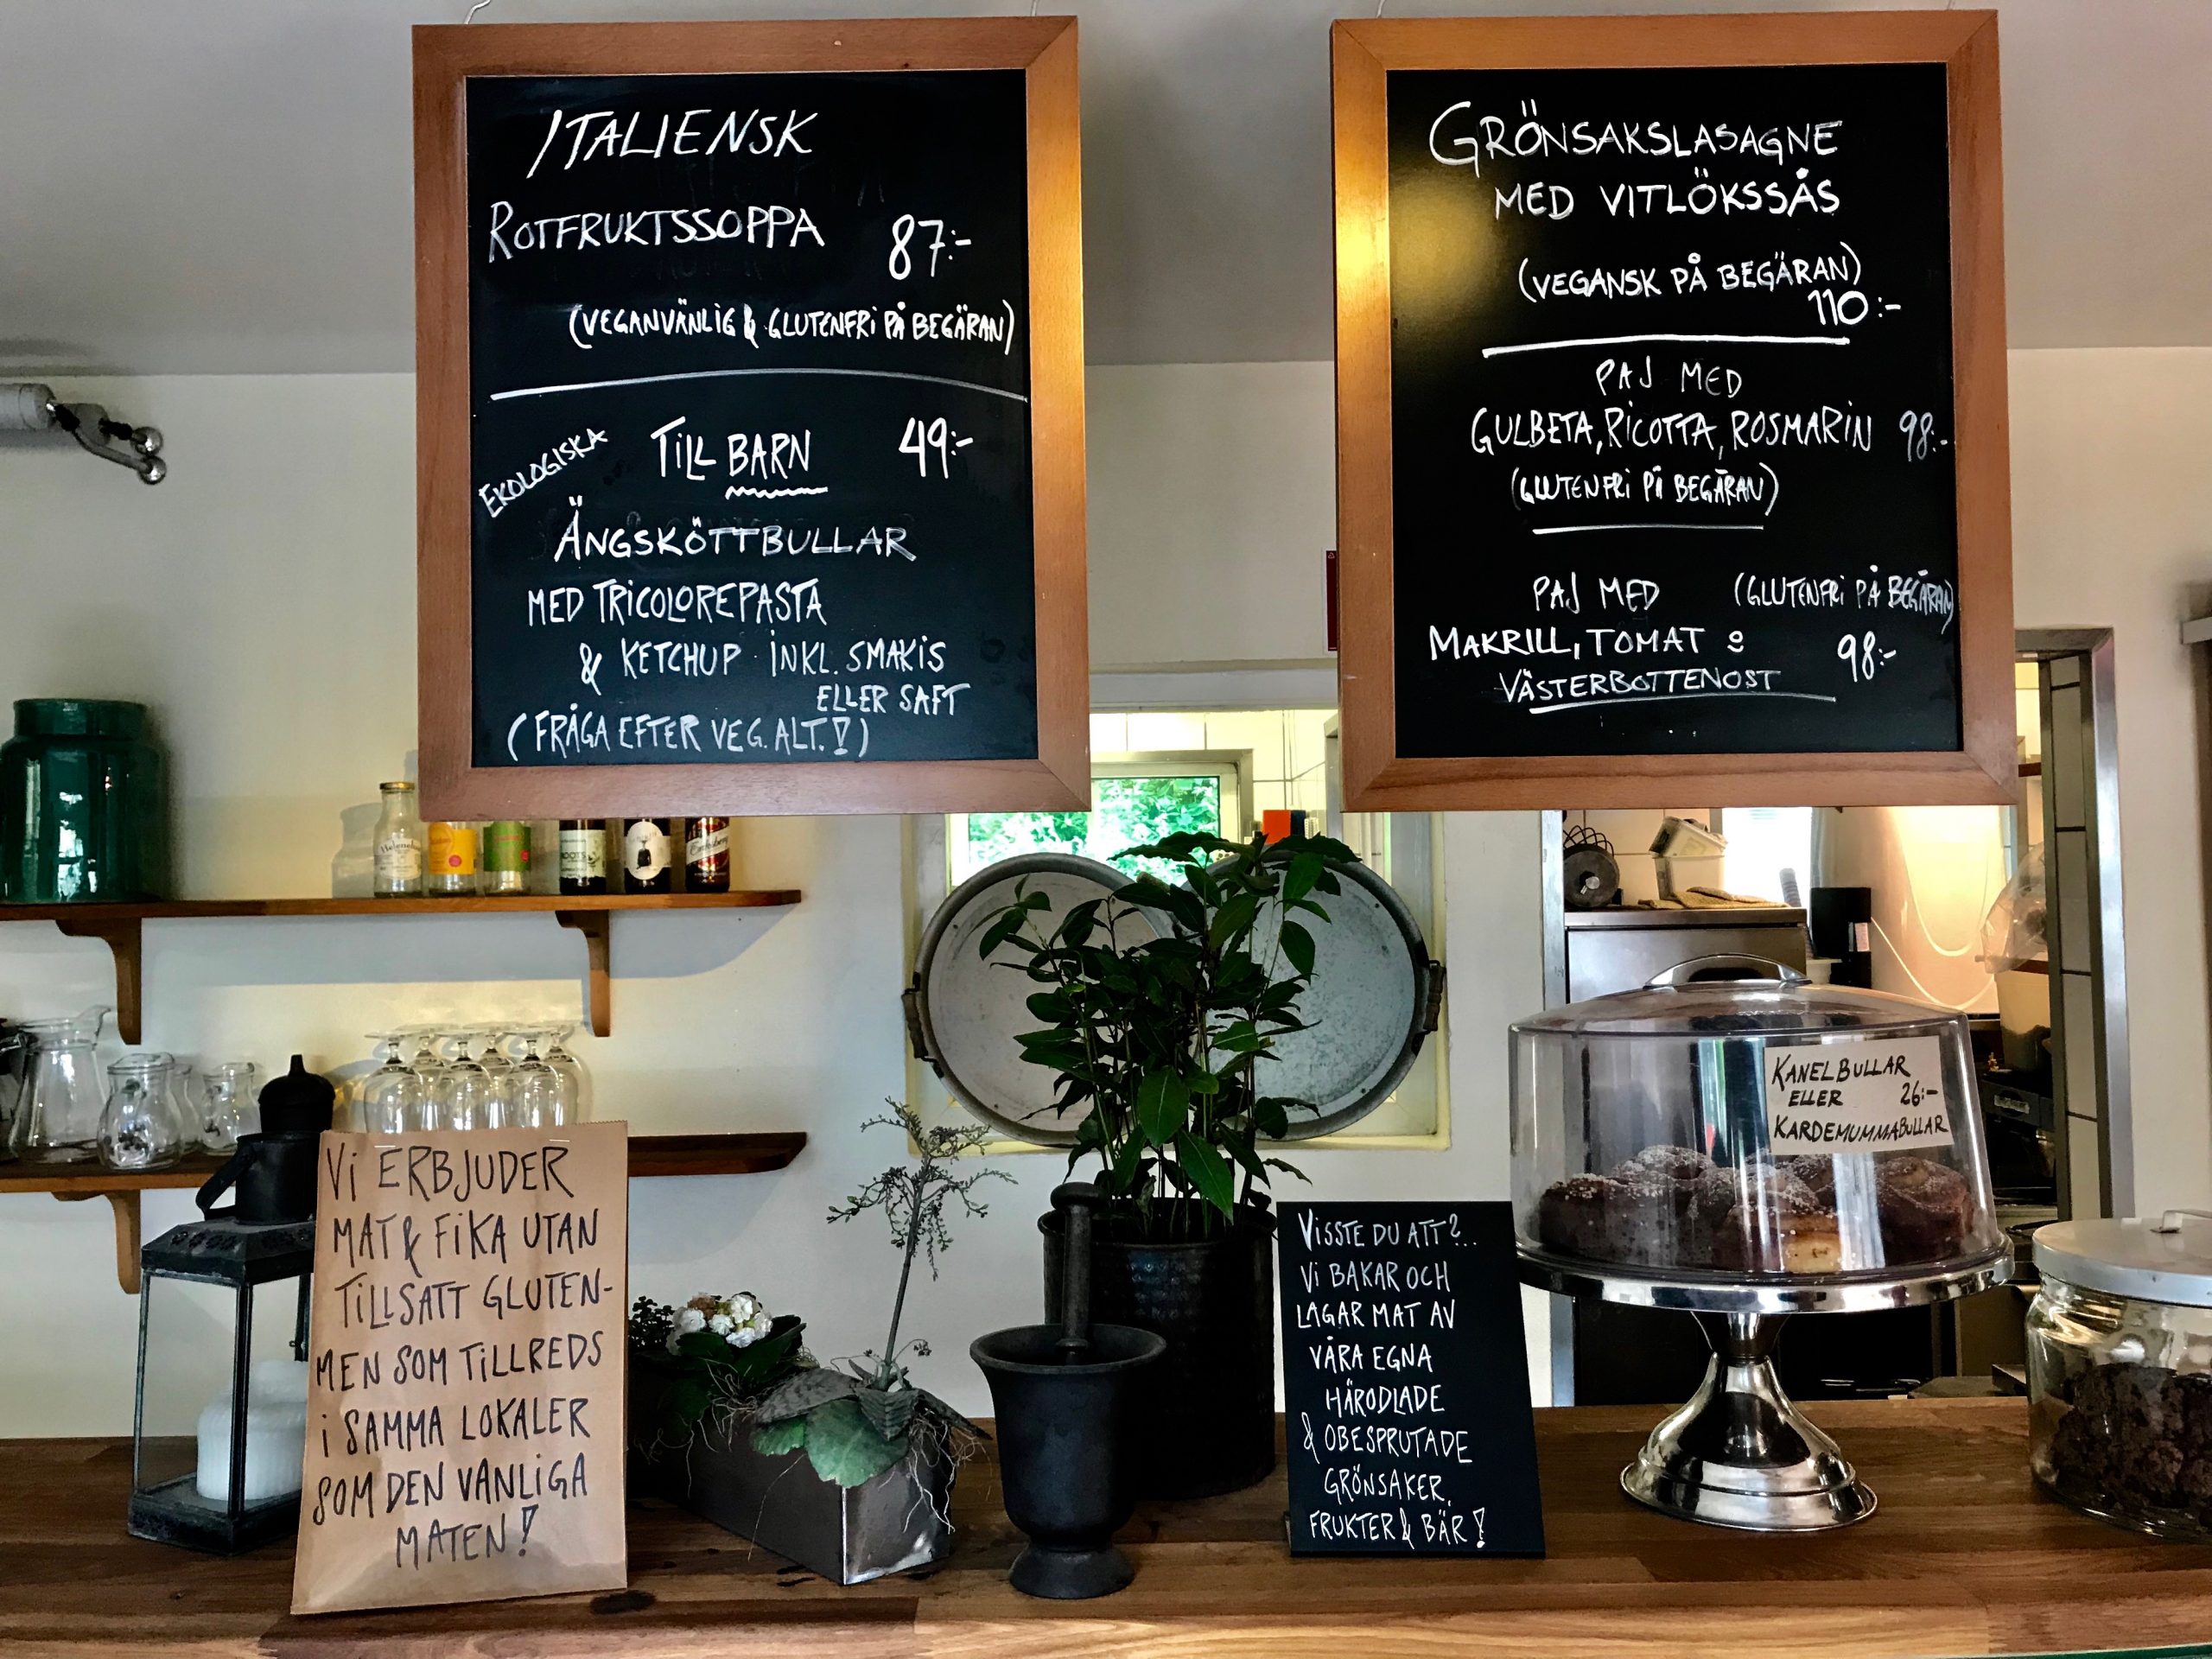 ITALIENSK
ROTFRUKTSSOPPA 87:-
(VEGANVÄNLIG & GLUTENFRI PÅ BEGÄRAN)
EKOLOGISKA TILL BARN 49:-
ÄNGSKÖTTBULLAR
MED TRICOLOREPASTA
& KETCHUP INKL. SMAKIS
ELLER SAFT
(FRÅGA EFTER VEG. ALT.!)
GRÖNSAKSLASAGNE
MED VITLÖKSSÅS
(VEGANSK PÅ BEGÄRAN)
110:-
PAJ MED
GULBETA, RICOTTA, ROSMARIN 98:-
(GLUTENFRI PÅ BEGÄRAN)
PAJ MED (GLUTENFRI PÅ BEGÄRAN)
MAKRILL, TOMAT & 98:-
VÄSTERBOTTENOST
KANELBULLAR
ELLER 26:-
KARDEMUMMABULLAR
VI ERBJUDER
MAT & FIKA UTAN
TILLSATT GLUTEN-
MEN SOM TILLREDS
I SAMMA LOKALER
SOM DEN VANLIGA
MATEN!
VISSTE DU ATT?..
VI BAKAR OCH
LAGAR MAT AV
VÅRA EGNA
HÄRODLADE
& OBESPRUTADE
GRÖNSAKER,
FRUKTER & BÄR!